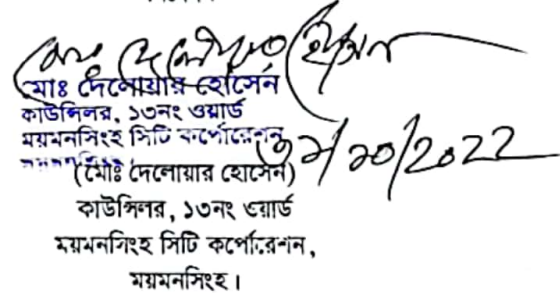 মোঃ দেলোয়ার হোসেন
মোঃ দেলোয়ার হোসেন
কাউন্সিলর, ১৩নং ওয়ার্ড
ময়মনসিংহ সিটি কর্পোরেশন
ময়মনসিংহ।
/১০/2022
(মোঃ দেলোয়ার হোসেন)
কাউন্সিলর, ১৩নং ওয়ার্ড
ময়মনসিংহ সিটি কর্পোরেশন,
ময়মনসিংহ।